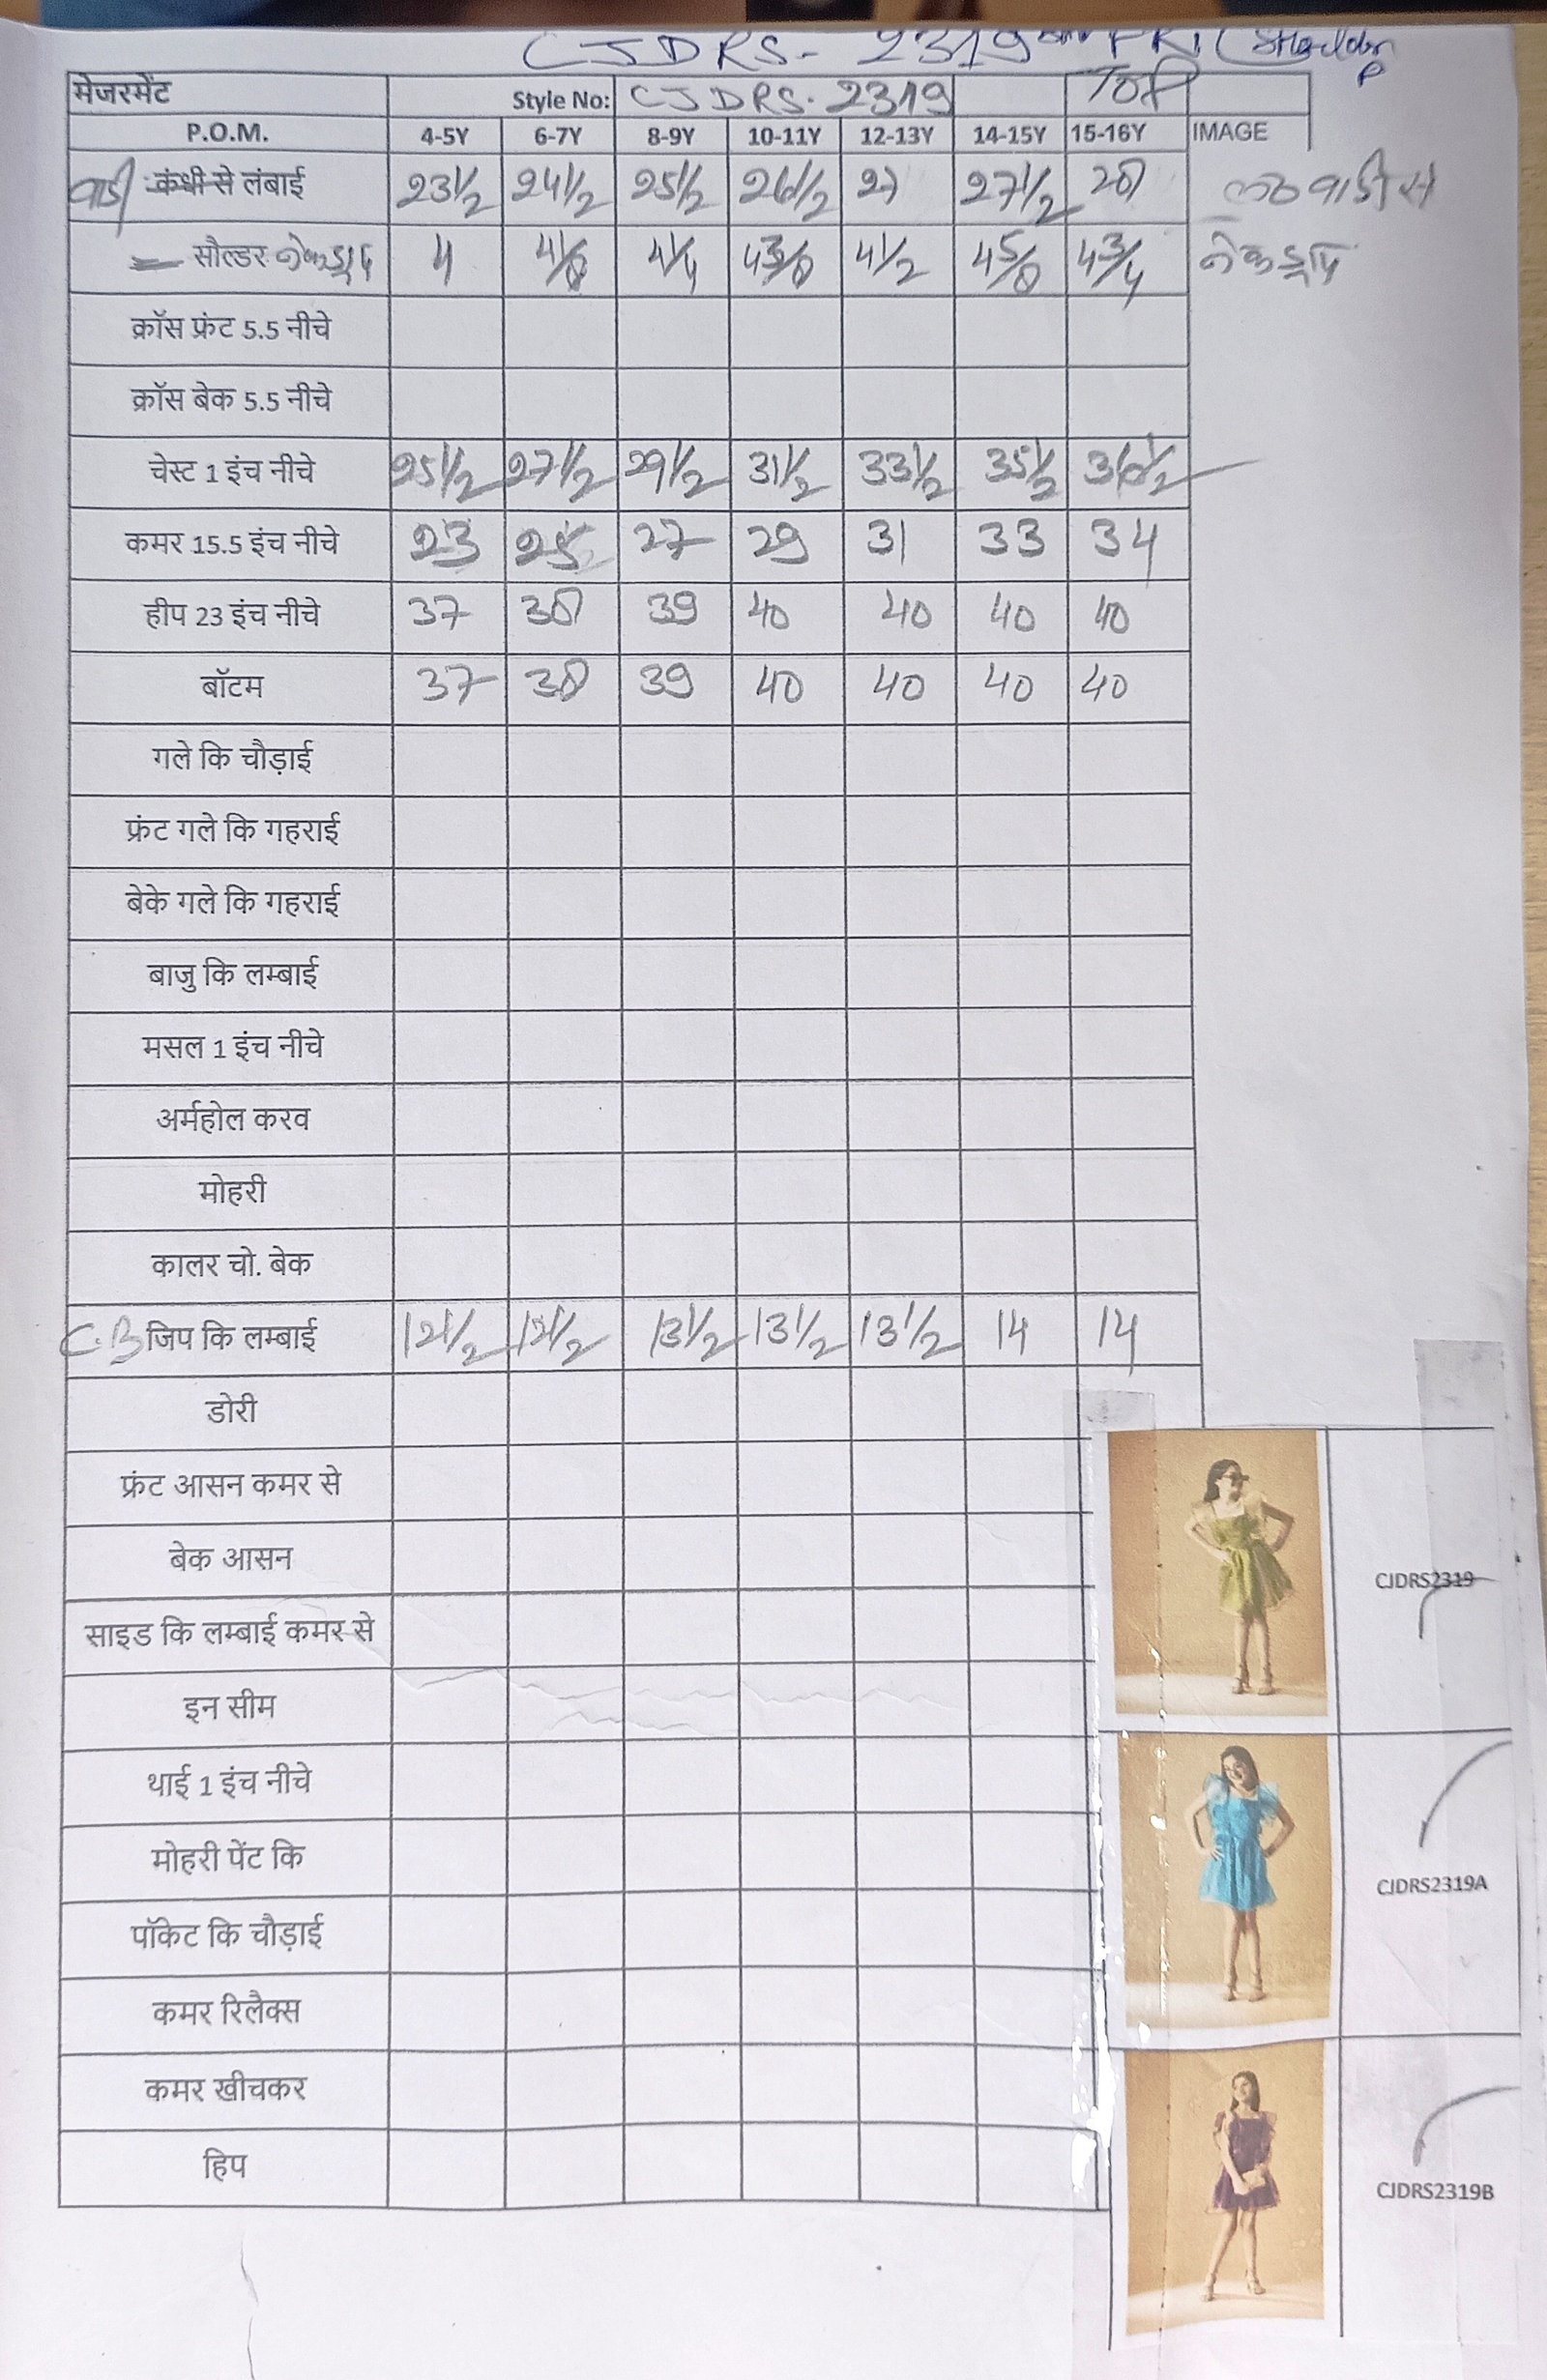 CJDRS- 2319
मेजरमेंट Style No: CJDRS-2319 TOP
P.O.M. 4-5Y 6-7Y 8-9Y 10-11Y 12-13Y 14-15Y 15-16Y IMAGE
बाडी कंधी से लंबाई 23 1/2 24 1/2 25 1/2 26 1/2 27 27 1/2 28 बाडी से
सौल्डर नेकड्राप 4 4 1/8 4 1/4 4 3/8 4 1/2 4 5/8 4 3/4 नेक ड्राप
क्रॉस फ्रंट 5.5 नीचे
क्रॉस बेक 5.5 नीचे
चेस्ट 1 इंच नीचे 25 1/2 27 1/2 29 1/2 31 1/2 33 1/2 35 1/2 36 1/2
कमर 15.5 इंच नीचे 23 25 27 29 31 33 34
हीप 23 इंच नीचे 37 38 39 40 40 40 40
बॉटम 37 38 39 40 40 40 40
गले कि चौड़ाई
फ्रंट गले कि गहराई
बेके गले कि गहराई
बाजु कि लम्बाई
मसल 1 इंच नीचे
अर्महोल करव
मोहरी
कालर चो. बेक
C.B जिप कि लम्बाई 12 1/2 12 1/2 13 1/2 13 1/2 13 1/2 14 14
डोरी
फ्रंट आसन कमर से
बेक आसन
CJDRS2319
साइड कि लम्बाई कमर से
इन सीम
थाई 1 इंच नीचे
मोहरी पेंट कि
CJDRS2319A
पॉकेट कि चौड़ाई
कमर रिलैक्स
कमर खीचकर
हिप
CJDRS2319B